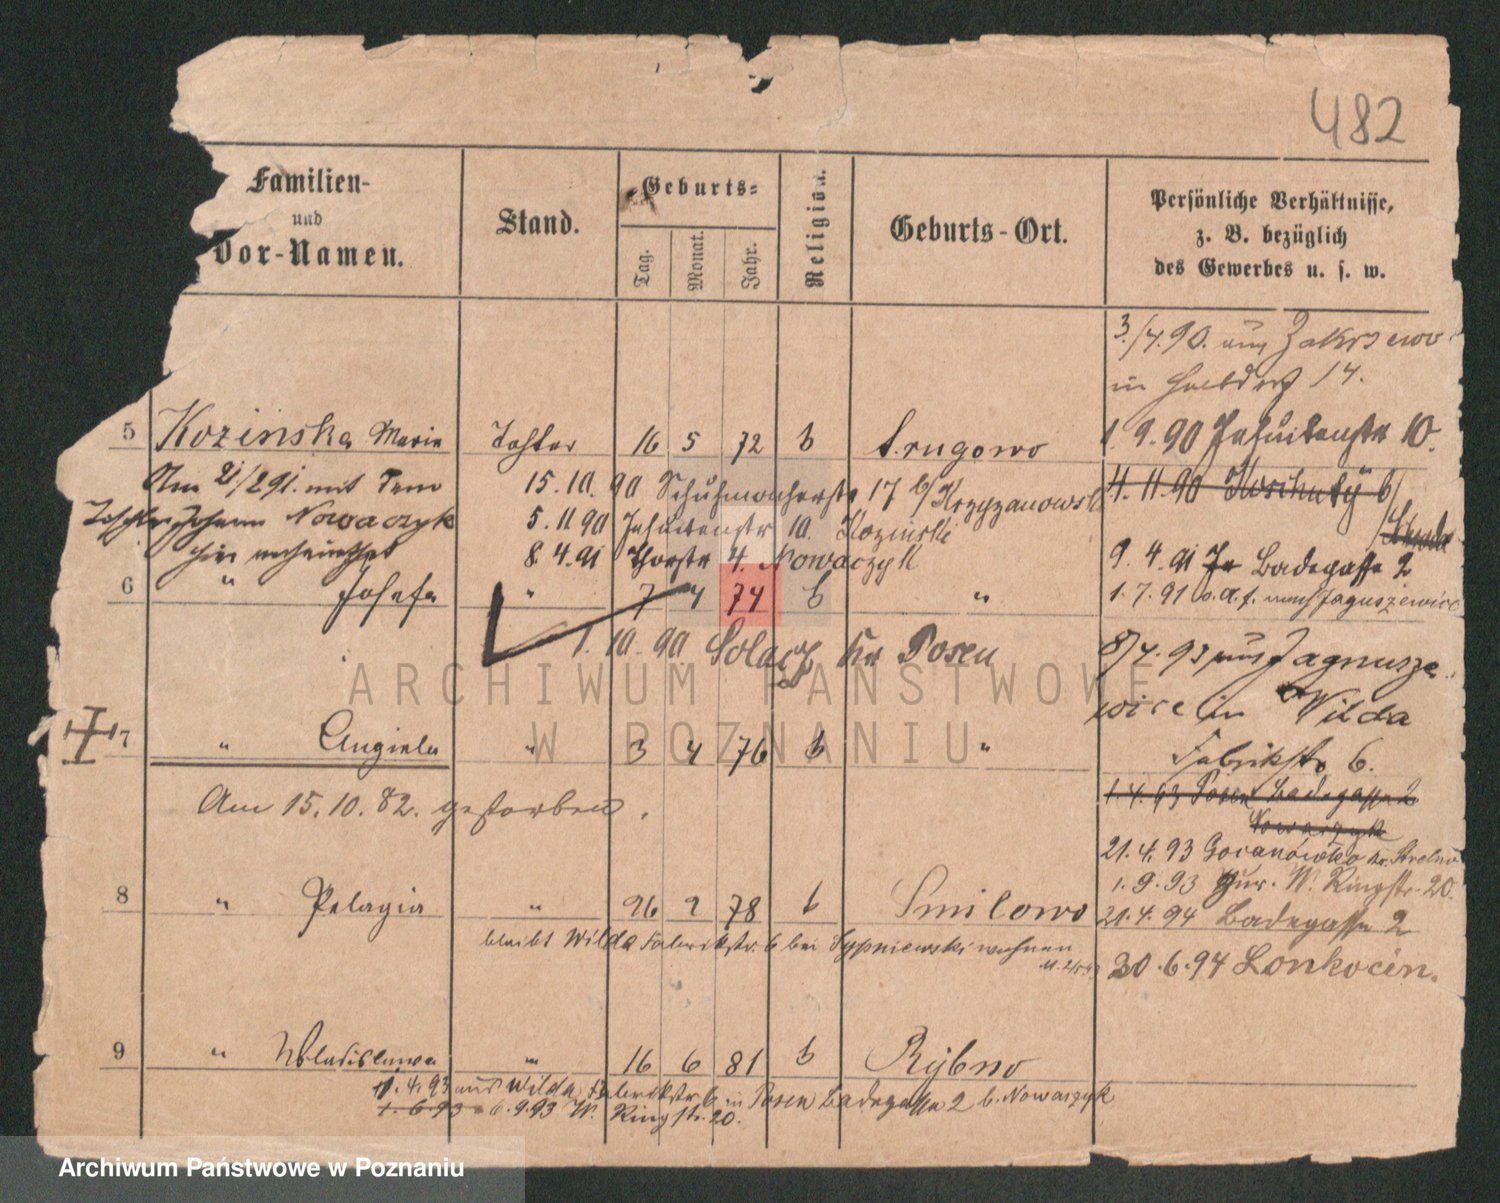 482
Familien-
und
Vor-Namen.
Stand.
Geburts-
Tag.
Monat.
Jahr.
Religion.
Geburts-Ort.
Persönliche Verhältnisse,
z. B. bezüglich
des Gewerbes u. s. w.
3./4.90. aus Zakrzewo
in 14.
5 Kozinska Marie Tochter 16 5 72 b
1.9.90 Jesuitenstr 10.
Am 2/291. mit dem
15.10.90 Schuhmacherstr 17 b/Krzyzanowski
4.11.90
Johann Nowaczyk
5.11.90 Jesuitenstr 10. Kozinski
hier verheirathet
8.4.91 Thorstr 4. Nowaczyk
9.4.91 Badegasse 2
6 " Josefa " 7 4 74 b "
1.7.91 nach Jaguszewice
1.10.90 Solacz Kr Posen
8/4.93 aus Jagusze
wice in Wilda
Fabrikstr 6.
7 " Angiela " 3 4 76 b "
Am 15.10.82. gestorben.
1.4.93 Posen Badegasse 2
Nowaczyk
21.4.93 Goranowko Kr. Strelno
1.9.93 W. Ringstr. 20.
8 " Pelagia " 26 2 78 b Smilowo
21.4.94 Badegasse 2
bleibt Wilda Fabrikstr. 6 bei Sypniewski wohnen
30.6.94 Lonkocin.
9 " Wladislawa " 16 6 81 b Rybno
1.4.93 aus Wilda, Fabrikstr 6 in Posen Badegasse 2 b. Nowaczyk
1.6.93 6.9.93 W. Ringstr. 20.
ARCHIWUM PAŃSTWOWE
W POZNANIU
Archiwum Państwowe w Poznaniu